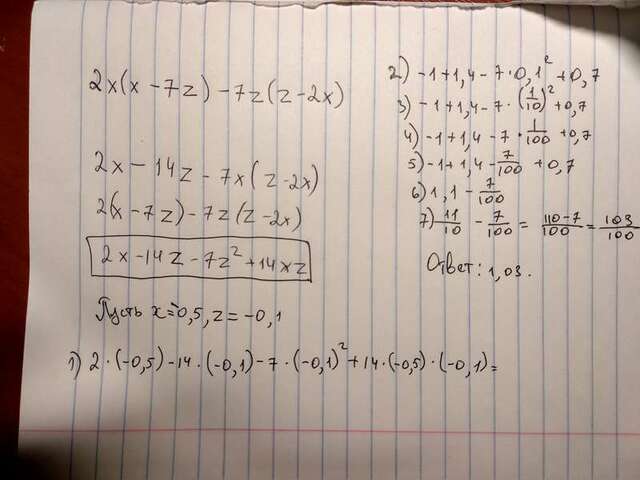 2x(x-7z)-7z(z-2x)
2x-14z-7x(z-2x)
2(x-7z)-7z(z-2x)
2x-14z-7z²+14xz
Пусть x=-0,5, z=-0,1
1) 2·(-0,5)-14·(-0,1)-7·(-0,1)²+14·(-0,5)·(-0,1)=
2) -1+1,4-7·0,1²+0,7
3) -1+1,4-7·(1/10)²+0,7
4) -1+1,4-7·1/100+0,7
5) -1+1,4-7/100+0,7
6) 1,1-7/100
7) 11/10-7/100=110-7/100=103/100
Ответ: 1,03.